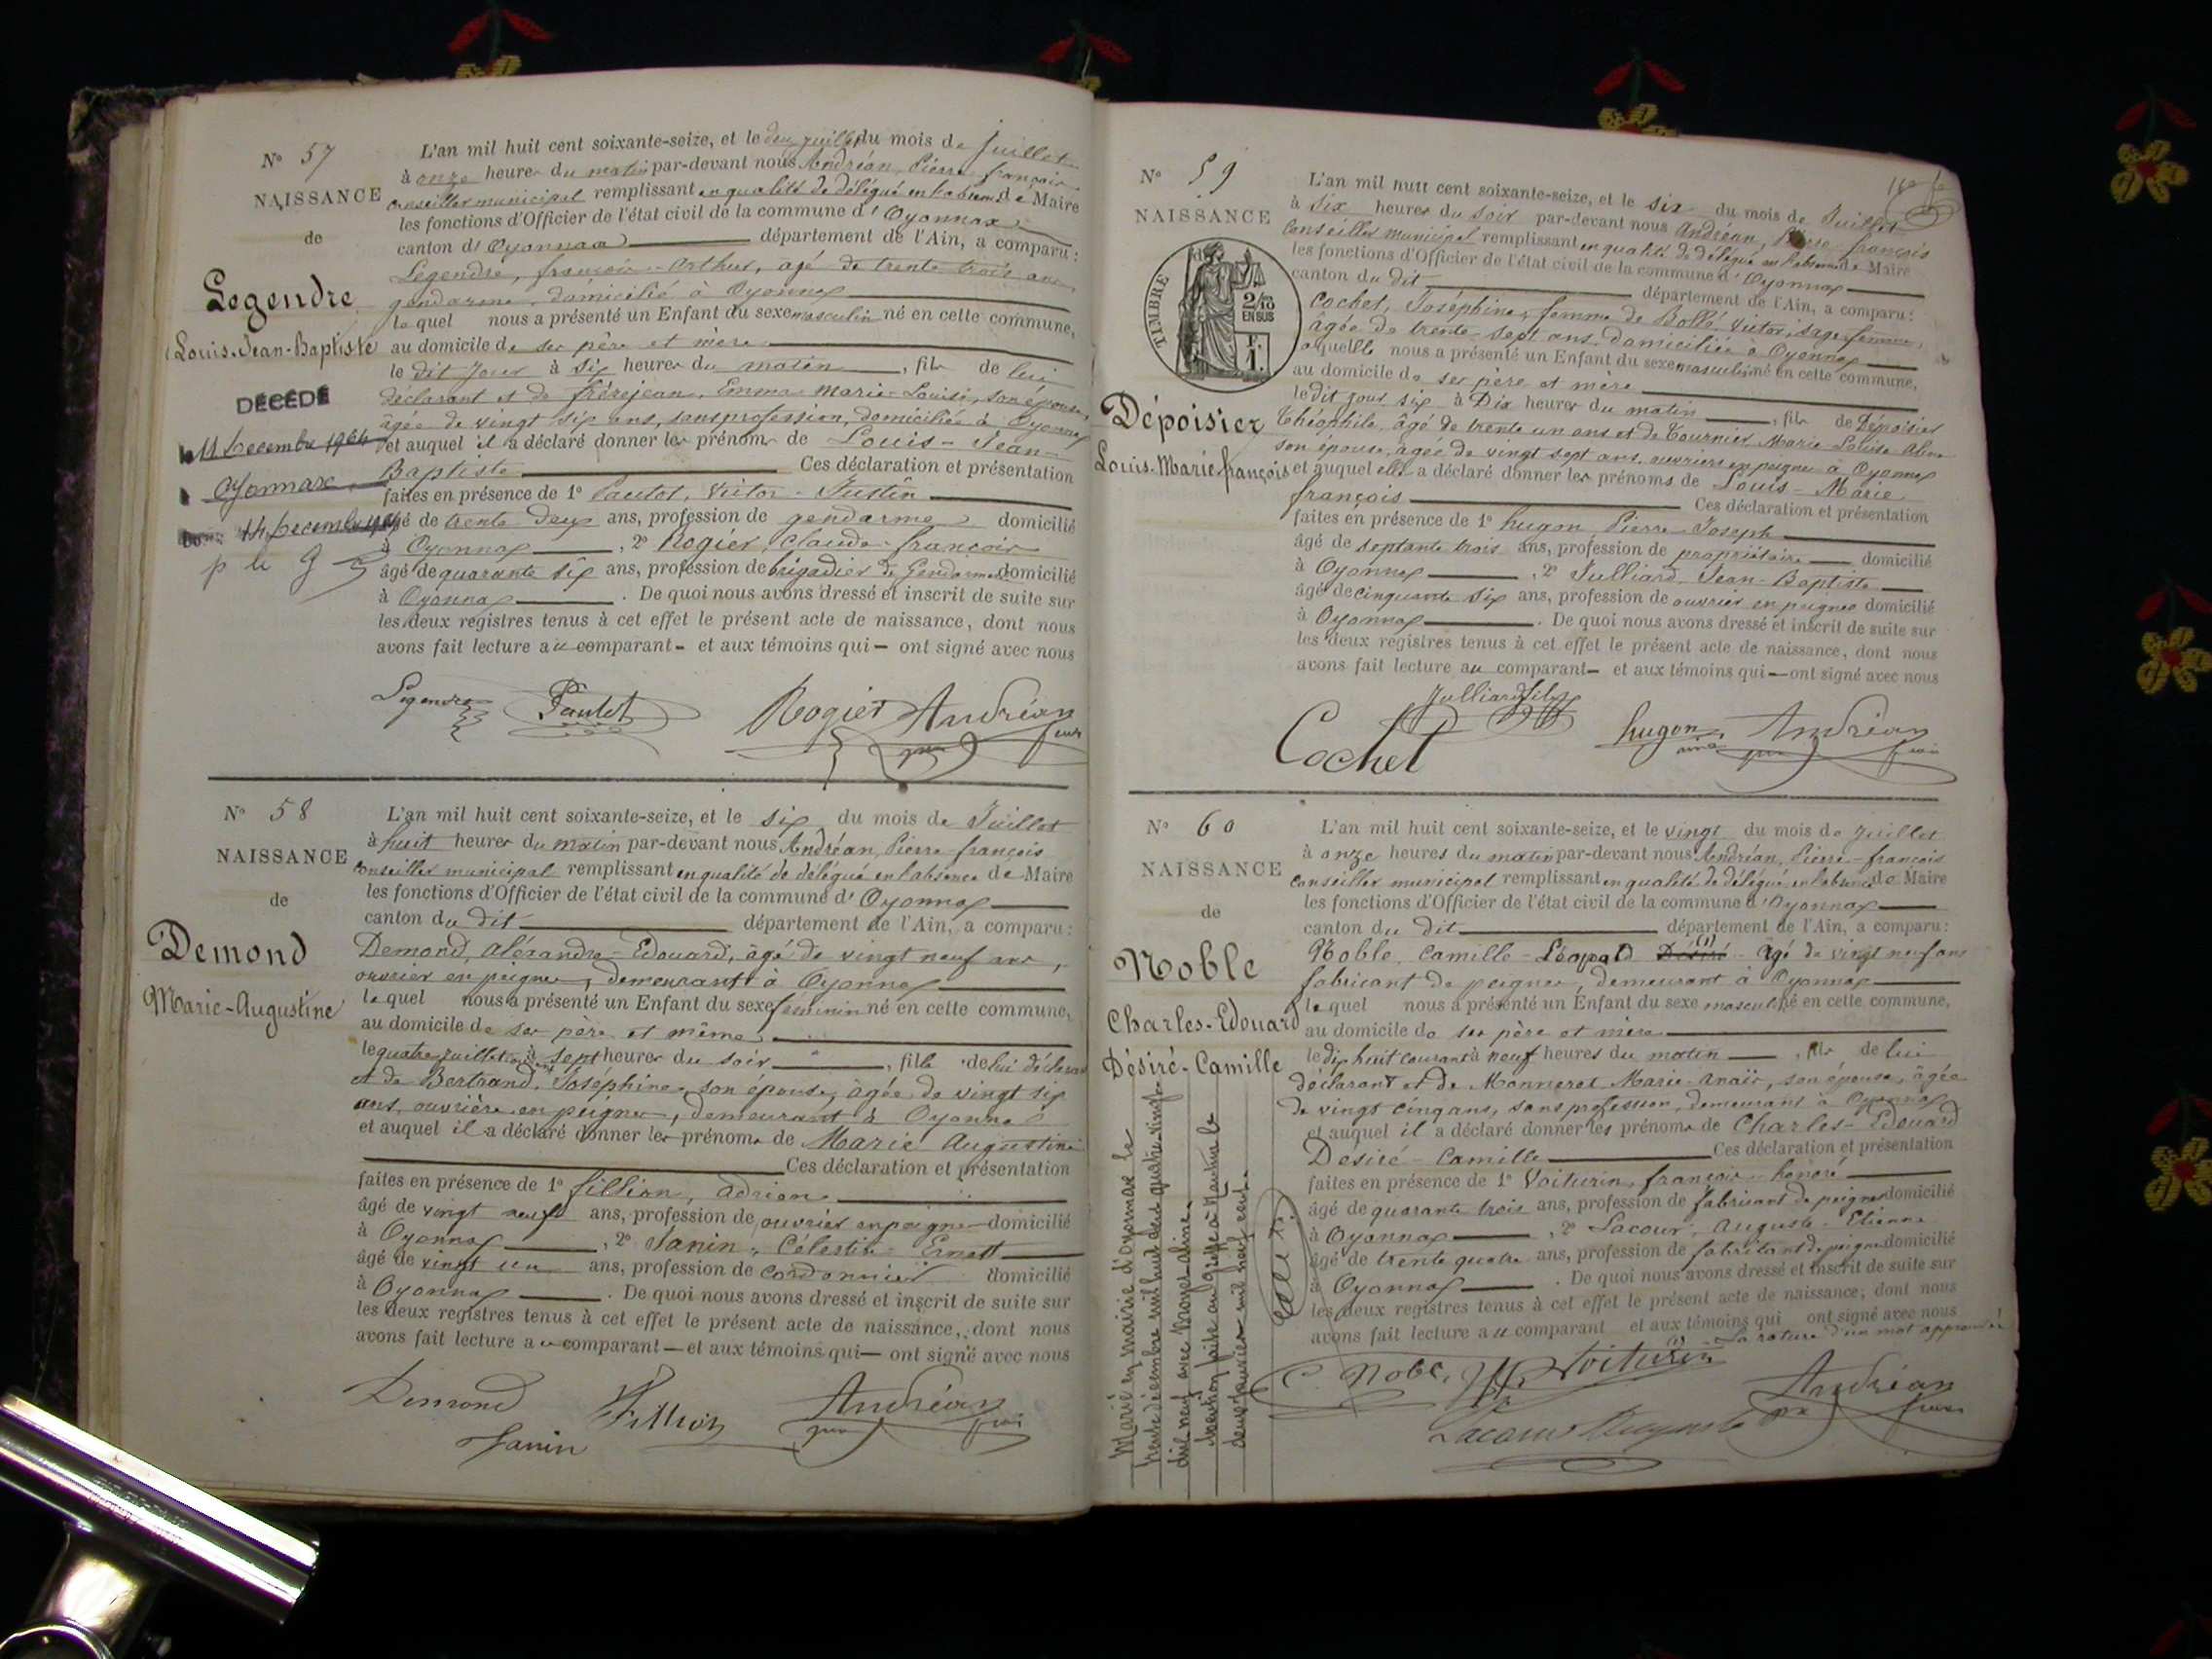 N° 57
NAISSANCE
de
Legendre
Louis-Jean-Baptiste
DÉCÉDÉ
le 11 Decembre 1964
Oyonnax
14 Decembre
p le g
L'an mil huit cent soixante-seize, et le deux juillet du mois de juillet
à onze heures du matin par-devant nous Andréan, Pierre françois
conseiller municipal remplissant en qualité de délégué en l'absence de Maire
les fonctions d'Officier de l'état civil de la commune d'Oyonnax
canton d'Oyonnax département de l'Ain, a comparu :
Legendre, françois-Arthur, âgé de trente trois ans
gendarme, domicilié à Oyonnax
lequel nous a présenté un Enfant du sexe masculin né en cette commune,
au domicile de ses père et mère
le dit jour à six heures du matin, fils de lui
déclarant et de frèrejean, Emma Marie-Louise, son épouse,
âgée de vingt six ans, sans profession, domiciliée à Oyonnax
et auquel il a déclaré donner les prénoms de Louis-Jean-
Baptiste Ces déclaration et présentation
faites en présence de 1° Pautet, Victor-Justin
âgé de trente deux ans, profession de gendarme domicilié
à Oyonnax, 2° Rogier, Claude-françois
âgé de quarante six ans, profession de brigadier de Gendarmerie domicilié
à Oyonnax. De quoi nous avons dressé et inscrit de suite sur
les deux registres tenus à cet effet le présent acte de naissance, dont nous
avons fait lecture au comparant - et aux témoins qui - ont signé avec nous
Legendre Pautet Rogier Andréan
N° 58
NAISSANCE
de
Demond
Marie-Augustine
L'an mil huit cent soixante-seize, et le six du mois de Juillet
à huit heures du matin par-devant nous Andréan, Pierre-françois
conseiller municipal remplissant en qualité de délégué en l'absence de Maire
les fonctions d'Officier de l'état civil de la commune d'Oyonnax
canton du dit département de l'Ain, a comparu :
Demond, Aléxandre-Edouard, âgé de vingt neuf ans,
ouvrier en peignes, demeurant à Oyonnax
lequel nous a présenté un Enfant du sexe feminin né en cette commune,
au domicile de ses père et même
le quatre juillet à sept heures du soir, fille de lui déclarant
et de Bertrand, Joséphine, son épouse, âgée de vingt six
ans, ouvrière en peignes, demeurant à Oyonnax
et auquel il a déclaré donner les prénoms de Marie Augustine
Ces déclaration et présentation
faites en présence de 1° fillion, Adrien
âgé de vingt neuf ans, profession de ouvrier en peignes domicilié
à Oyonnax, 2° Janin, Célestin Ernest
âgé de vingt un ans, profession de cordonnier domicilié
à Oyonnax. De quoi nous avons dressé et inscrit de suite sur
les deux registres tenus à cet effet le présent acte de naissance, dont nous
avons fait lecture au comparant — et aux témoins qui — ont signé avec nous
Demond Fillion Andréan
Janin
N° 59
NAISSANCE
TIMBRE
2/10 EN SUS
F. 1.
Dépoisier
Louis-Marie françois
L'an mil huit cent soixante-seize, et le six du mois de Juillet
à six heures du soir par-devant nous Andréan, Pierre françois
conseiller municipal remplissant en qualité de délégué en l'absence de Maire
les fonctions d'Officier de l'état civil de la commune d'Oyonnax
canton du dit département de l'Ain, a comparu :
Cochet, Joséphine, femme de Bollé, Victor, sage femme,
âgée de trente-sept ans, domiciliée à Oyonnax
laquelle nous a présenté un Enfant du sexe masculin né en cette commune,
au domicile de ses père et mère
le dit jour six à Dix heures du matin, fils de Dépoisier
Théophile, âgé de trente un ans et de Tournier Marie-Louise Aline
son épouse, âgée de vingt sept ans, ouvriers en peignes à Oyonnax
et auquel elle a déclaré donner les prénoms de Louis-Marie
françois Ces déclaration et présentation
faites en présence de 1° hugon Pierre-Joseph
âgé de septante trois ans, profession de propriétaire domicilié
à Oyonnax, 2° Julliard Jean-Baptiste
âgé de cinquante six ans, profession de ouvrier en peignes domicilié
à Oyonnax. De quoi nous avons dressé et inscrit de suite sur
les deux registres tenus à cet effet le présent acte de naissance, dont nous
avons fait lecture au comparant - et aux témoins qui - ont signé avec nous
Julliard
Cochet hugon Andréan
N° 60
NAISSANCE
de
Noble
Charles-Edouard
Désiré-Camille
L'an mil huit cent soixante-seize, et le vingt du mois de Juillet
à onze heures du matin par-devant nous Andréan, Pierre-françois
conseiller municipal remplissant en qualité de délégué en l'absence de Maire
les fonctions d'Officier de l'état civil de la commune d'Oyonnax
canton du dit département de l'Ain, a comparu :
Noble, Camille-Léopold Désiré (1) âgé de vingt neuf ans
fabricant de peignes, demeurant à Oyonnax
lequel nous a présenté un Enfant du sexe masculin né en cette commune,
au domicile de ses père et mère
le dix huit courant à neuf heures du matin, fils de lui
déclarant et de Monneret Marie-Anaïs, son épouse, âgée
de vingt cinq ans, sans profession, demeurant à Oyonnax
et auquel il a déclaré donner les prénoms de Charles-Edouard
Desiré-Camille Ces déclaration et présentation
faites en présence de 1° Voiturin, françois-honoré
âgé de quarante trois ans, profession de fabricant de peignes domicilié
à Oyonnax, 2° Lacour, Auguste-Etienne
âgé de trente quatre ans, profession de fabricant de peignes domicilié
à Oyonnax. De quoi nous avons dressé et inscrit de suite sur
les deux registres tenus à cet effet le présent acte de naissance, dont nous
avons fait lecture au comparant et aux témoins qui ont signé avec nous
(1) La rature d'un mot approuvée
C. Noble Voiturin Andréan
Lacour Auguste
Marié en mairie d'oyonnax le
trente décembre mil huit cent quatre-vingt
dix neuf avec Moyer Aline.
Insertion faite au greffe à Nantua le
deux janvier mil neuf cent.